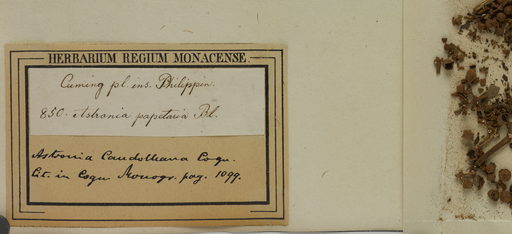 HERBARIUM REGIUM MONACENSE.
Cuming pl. ins. Philippin.
850. Astronia papetaria Bl.
Astronia Candolleana Cogn.
Cit. in Cogn. Monogr. pag. 1099.